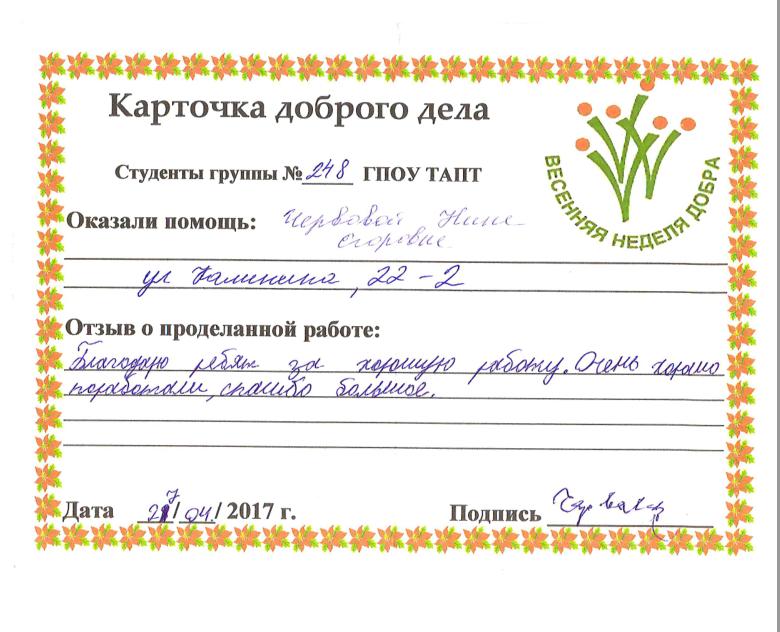 Карточка доброго дела
ВЕСЕННЯЯ НЕДЕЛЯ ДОБРА
Студенты группы № 248 ГПОУ ТАПТ
Оказали помощь: Червовой Нине
Егоровне
ул Калинина, 22-2
Отзыв о проделанной работе:
Благодарю ребят за хорошую работу. Очень хорошо
поработали, спасибо большое.
Дата 27/04/2017 г. Подпись